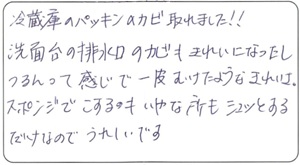 冷蔵庫のパッキンのカビ取れました!!
洗面台の排水口のカビもきれいになったし
つるんって感じで一皮むけたようなきれいさ。
スポンジでこするのもいやな所もシュッとする
だけなのでうれしいです